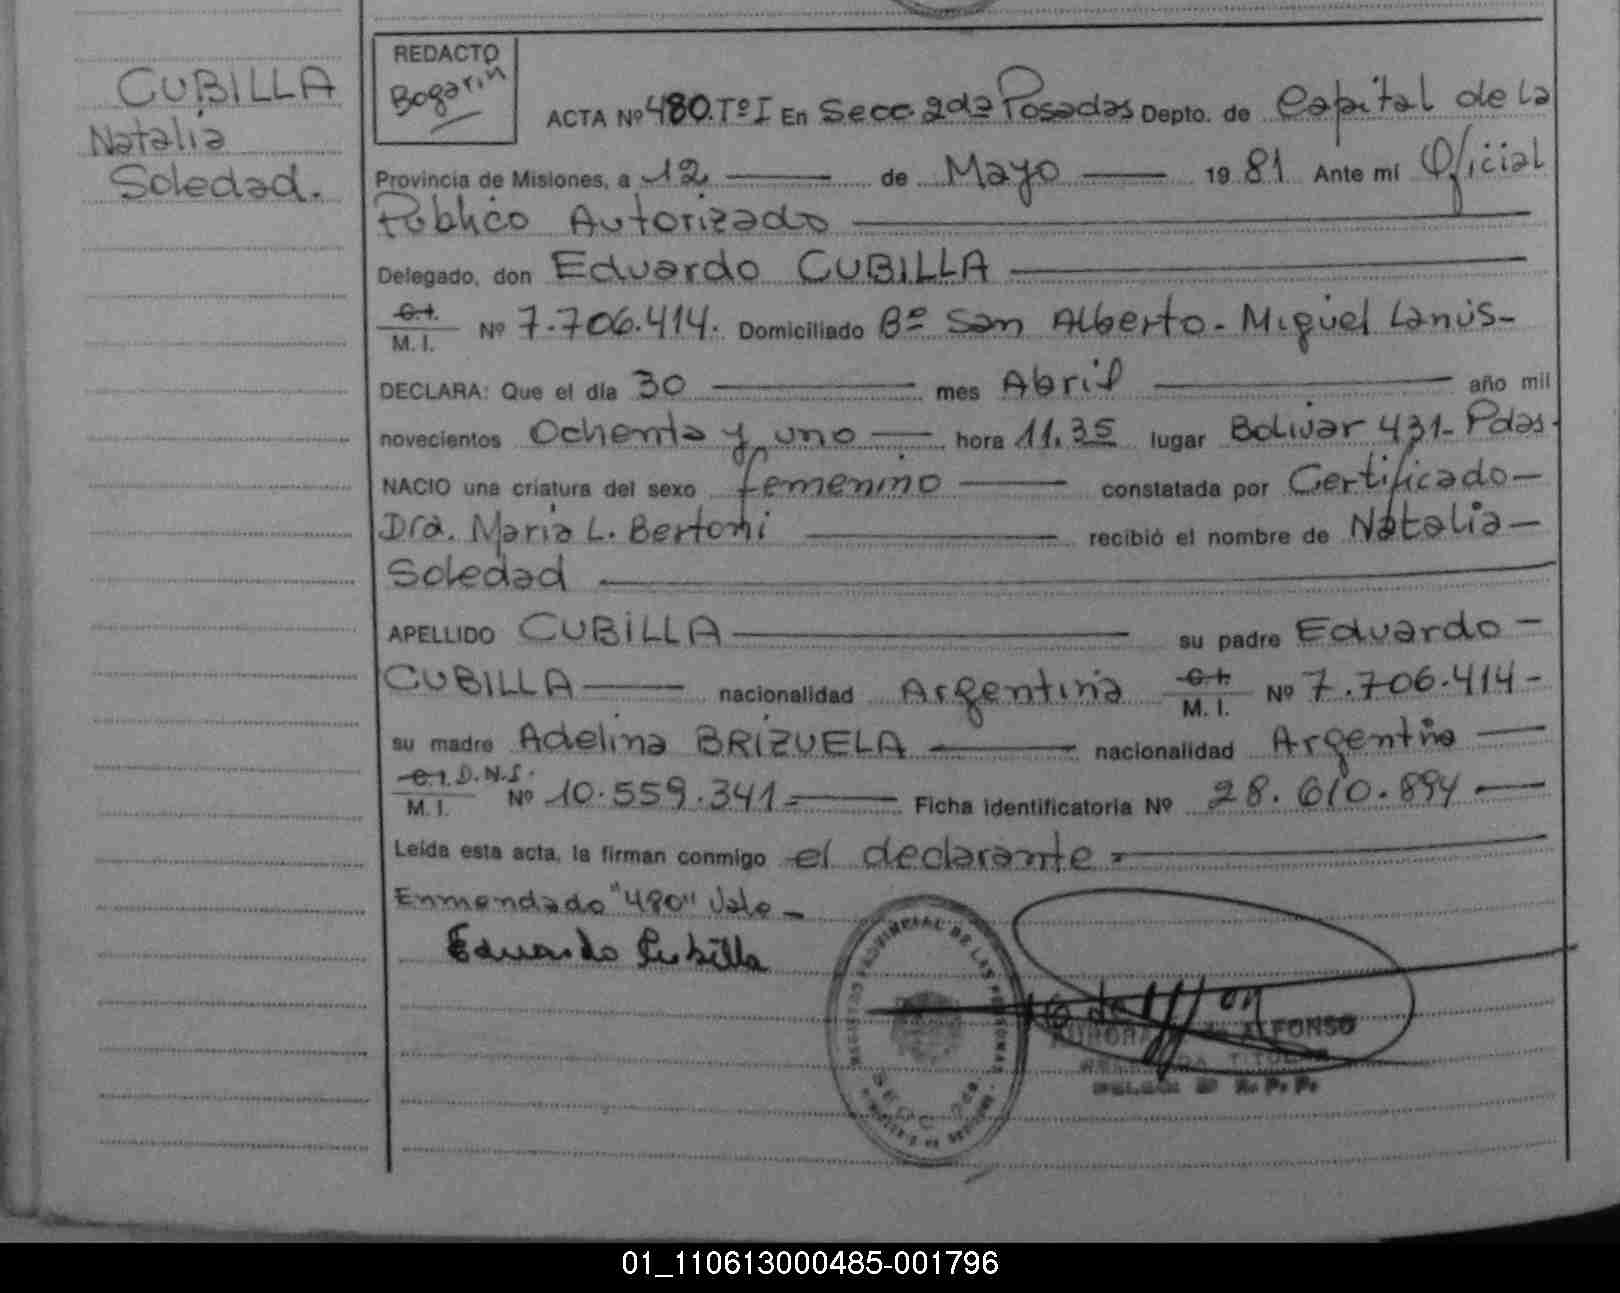 CUBILLA
Natalia
Soledad.
REDACTO
Bogarin
ACTA Nº 480.TºI En Secc. 2da Posadas Depto. de Capital de la
Provincia de Misiones, a 12 de Mayo 1981 Ante mí Oficial
Público Autorizado
Delegado, don Eduardo CUBILLA
C.I.
M. I. Nº 7.706.414. Domiciliado Bº San Alberto - Miguel Lanús-
DECLARA: Que el día 30 mes Abril año mil
novecientos Ochenta y uno hora 11.35 lugar Bolivar 431- Pdas.
NACIO una criatura del sexo femenino constatada por Certificado-
Dra. Maria L. Bertoni recibió el nombre de Natalia-
Soledad
APELLIDO CUBILLA su padre Eduardo-
CUBILLA nacionalidad Argentina C.I.
M. I. Nº 7.706.414-
su madre Adelina BRIZUELA nacionalidad Argentina
C.I. D.N.I.
M. I. Nº 10.559.341.= Ficha identificatoria Nº 28.610.894.
Leída esta acta, la firman conmigo el declarante.
Enmendado "480" Vale-
Eduardo Cubilla
REGISTRO PROVINCIAL DE LAS PERSONAS
SECC. 2da
AURORA ALFONSO
TITULAR
R.P.P.
01_110613000485-001796